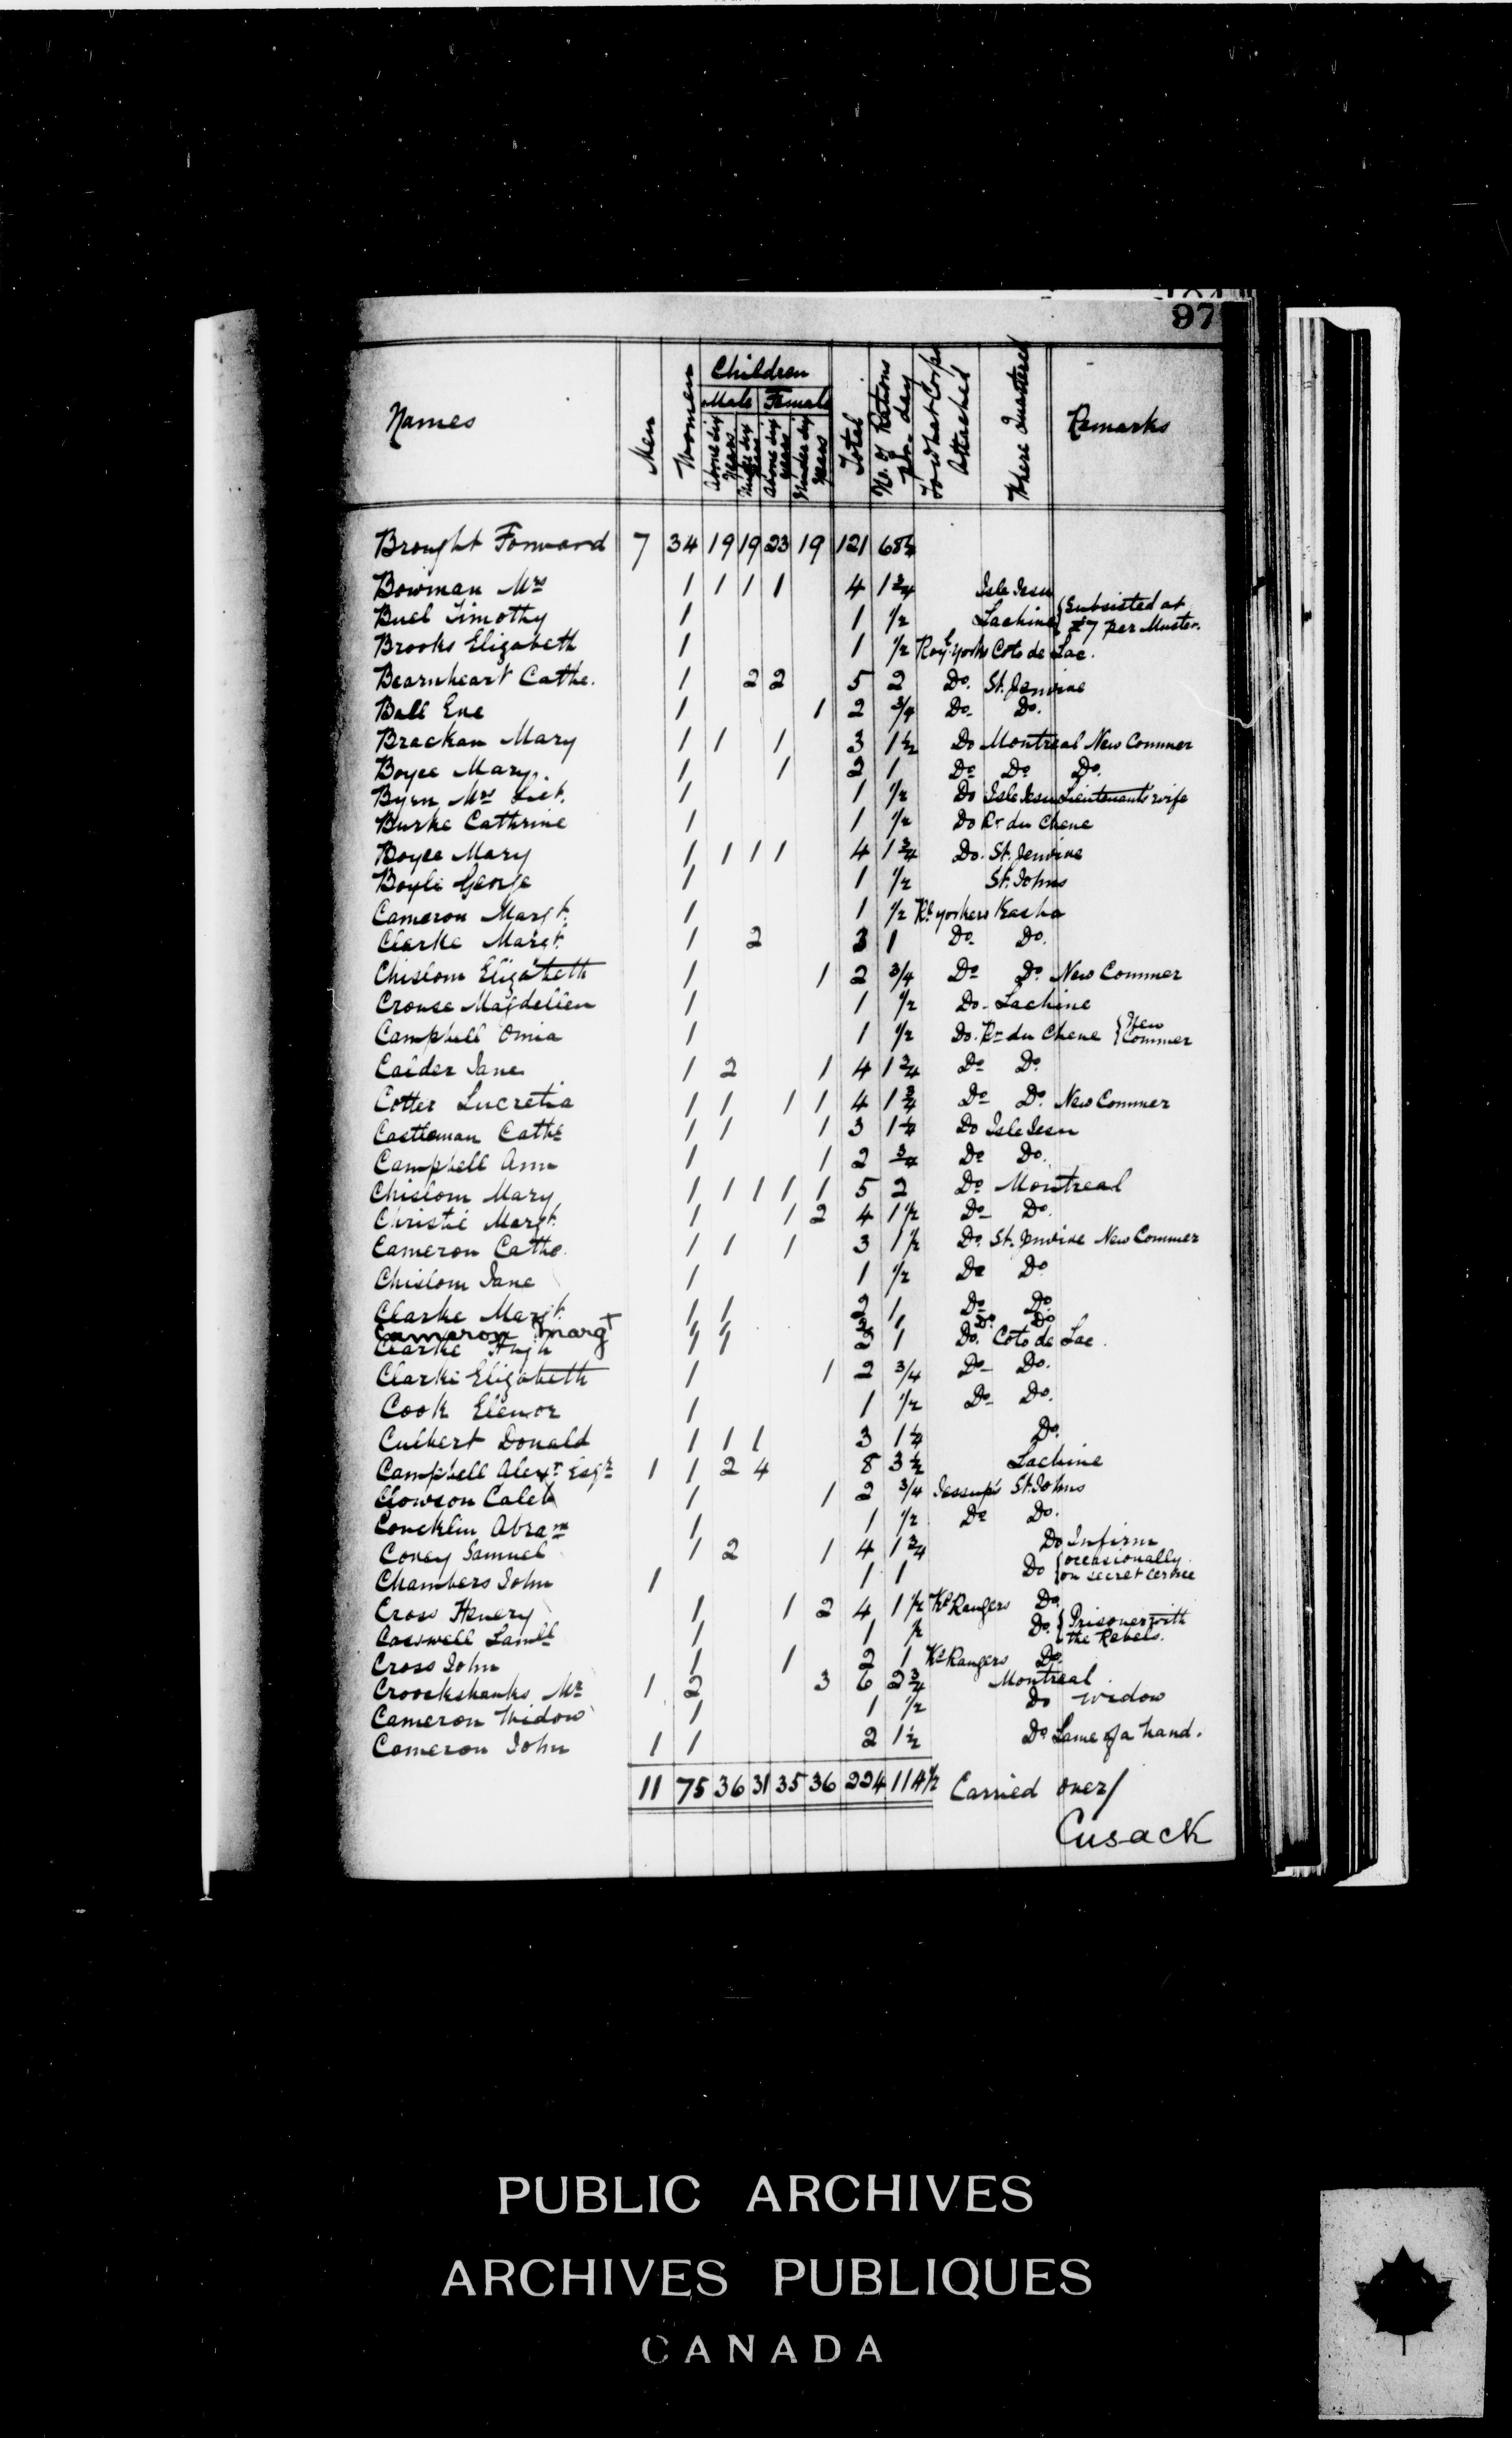 97
Names Men Women Children Total No. of Rations per day To what Corps Attached Where Quartered Remarks
Male Female
Above Six Years Under Six Years Above Six years Under Six Years
Brought Forward 7 34 19 19 23 19 121 68¼
Bowman Mrs 1 1 1 1 4 1¾ Isle Jesu
Buel Timothy 1 1 ½ Lachine {Subsisted at £7 per Muster.
Brooks Elizabeth 1 1 ½ Royl Yorks Coto de Lac.
Bearnheart Cathe. 1 2 2 5 2 Do. St. Jenvine
Ball Eve 1 1 2 ¾ Do. Do.
Brackan Mary 1 1 1 3 1½ Do Montreal New Commer
Boyce Mary. 1 1 2 1 Do Do Do.
Byrn Mrs Liet. 1 1 ½ Do Isle Jesu Lieutenants wife
Burke Cathrine 1 1 ½ Do Rr du Chene
Boyce Mary 1 1 1 1 4 1¾ Do. St. Jenvine
Boyle George 1 1 ½ St. Johns
Cameron Margt. 1 1 ½ Rl Yorkers Masha
Clarke Margt. 1 2 3 1 Do Do.
Chislom Elizabeth 1 1 2 ¾ Do Do. New Commer
Crouse Magdelien 1 1 ½ Do. Lachine
Campbell Omia 1 1 ½ Do. Rr du Chene {New Commer
Calder Jane 1 2 1 4 1¾ Do Do.
Cotter Lucretia 1 1 1 1 4 1¾ Do Do. New Commer
Castleman Cathe 1 1 1 3 1¼ Do Isle Jesu
Campbell Ann 1 1 2 ¾ Do Do.
Chislom Mary 1 1 1 1 1 5 2 Do Montreal
Christie Margt. 1 1 2 4 1½ Do Do.
Cameron Cathe. 1 1 1 3 1½ Do. St. Jenvine New Commer
Chislom Jane 1 1 ½ Do Do
Clarke Margt. 1 1 2 1 Do Do.
Cameron Margt 1 1 2 1 Do Do
Clarke Hugh 1 1 2 1 Do. Coto de Lac.
Clarke Elizabeth 1 1 2 ¾ Do Do.
Cook Elenor 1 1 ½ Do Do.
Culbert Donald 1 1 1 3 1¼ Do.
Campbell Alexr Esqr 1 1 2 4 8 3½ Lachine
Clowson Caleb 1 1 2 ¾ Jessup's St. Johns
Concklin Abram 1 1 ½ Do Do.
Coney Samuel 1 2 1 4 1¾ Do Infirm
Chambers John 1 1 1 Do {occasionally on secret Cervice
Cross Henery 1 1 2 4 1½ Ks Rangers Do
Casswell Samll 1 1 ½ Do. {Prisoner with the Rebels.
Cross John 1 1 2 1 Ks Rangers Do.
Croockshanks Mr 1 2 3 6 2¾ Montreal
Cameron Widow 1 1 ½ Do Widow
Cameron John 1 1 2 1½ Do Lame of a hand.
11 75 36 31 35 36 224 114½ Carried over/
Cusack
PUBLIC ARCHIVES
ARCHIVES PUBLIQUES
CANADA